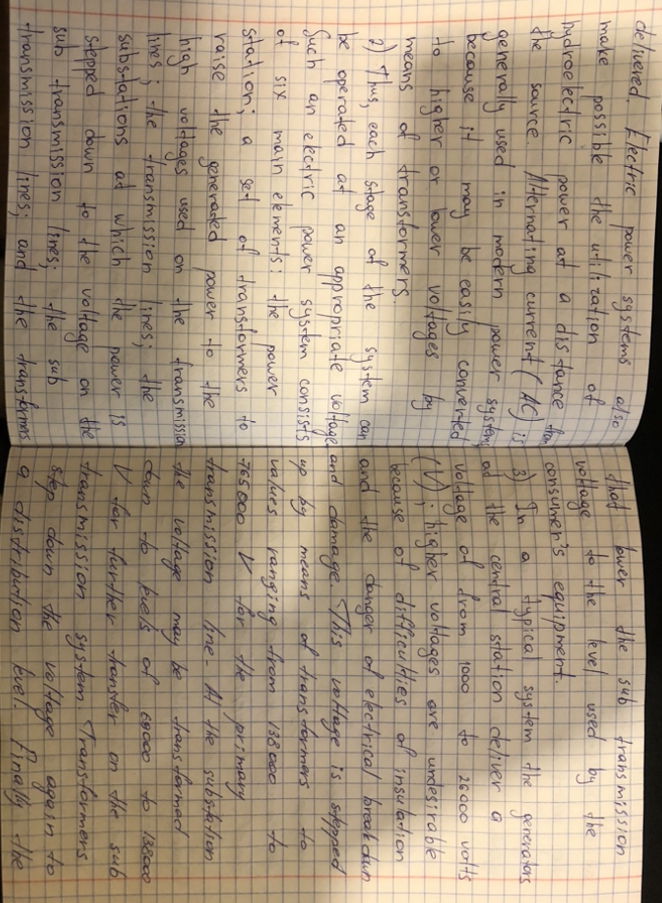 delivered. Electric power systems also
make possible the utilization of
hydroelectric power at a distance from
the source Alternating current (AC) is
generally used in modern power systems,
because it may be easily converted
to higher or lower voltages by
means of transformers.
2) Thus, each stage of the system can
be operated at an appropriate voltage.
Such an electric power system consists
of six main elements: the power
station; a set of transformers to
raise the generated power to the
high voltages used on the transmission
lines; the transmission lines; the
substations at which the power is
stepped down to the voltage on the
sub transmission lines; the sub
transmission lines; and the transformers
that lower the sub transmission
voltage to the level used by the
consumer's equipment.
3) In a typical system the generators
at the central station deliver a
voltage of from 1000 to 26000 volts
(V); higher voltages are undesirable
because of difficulties of insulation
and the danger of electrical breakdown
and damage. This voltage is stepped
up by means of transformers to
values ranging from 138000 to
765000 V for the primary
transmission line. At the substation
the voltage may be transformed
down to levels of 69000 to 138000
V for further transfer on the sub
transmission system Transformers
step down the voltage again to
a distribution level. Finally the